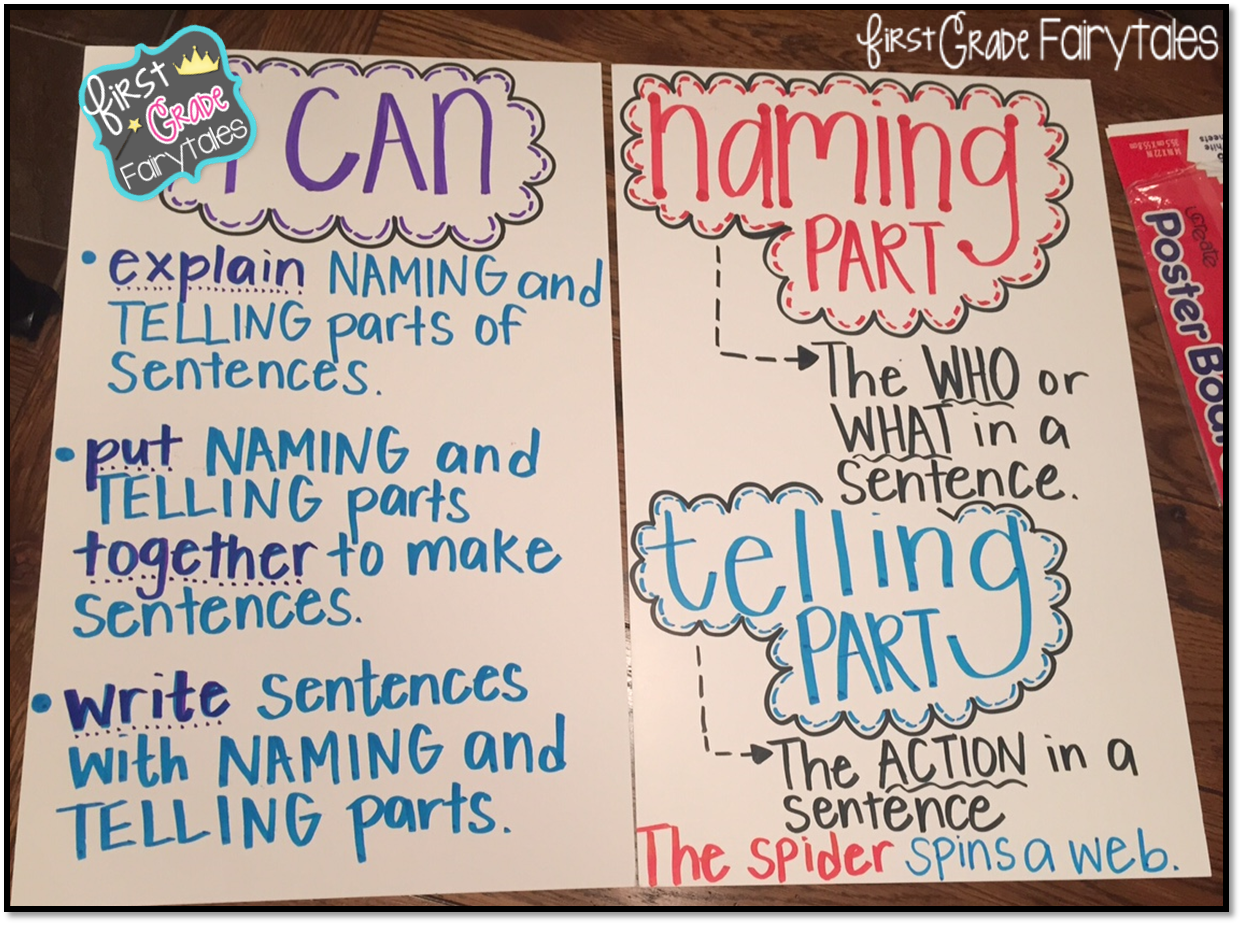 First Grade Fairytales
First
Grade
Fairytales
I CAN
• explain NAMING and
TELLING parts of
Sentences.
• put NAMING and
TELLING parts
together to make
Sentences.
• write Sentences
with NAMING and
TELLING parts.
naming
PART
The WHO or
WHAT in a
Sentence.
telling
PART
The ACTION in a
sentence
The spider spins a web.
create
Poster Boa